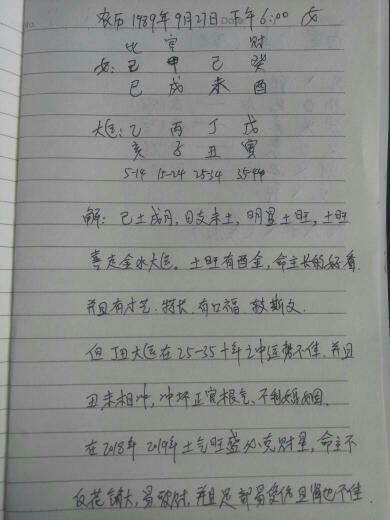 农历1989年9月27日下午6:00 女
比 官 财
女: 己 甲 己 癸
巳 戌 未 酉
大运: 乙 丙 丁 戊
亥 子 丑 寅
5-14 15-24 25-34 35-44
解: 己土戌月, 日支未土, 明显土旺, 土旺
喜走金水大运。土旺有酉金, 命主长的好看
并且有才艺. 特长. 有口福. 较斯文.
但丁丑大运在25-35十年之中运势不佳. 并且
丑未相冲, 冲坏正官根气、不利婚姻.
在2018年 2019年土气旺盛必克财星, 命主不
仅花销大, 易破财, 并且足部易受伤且肾也不佳.